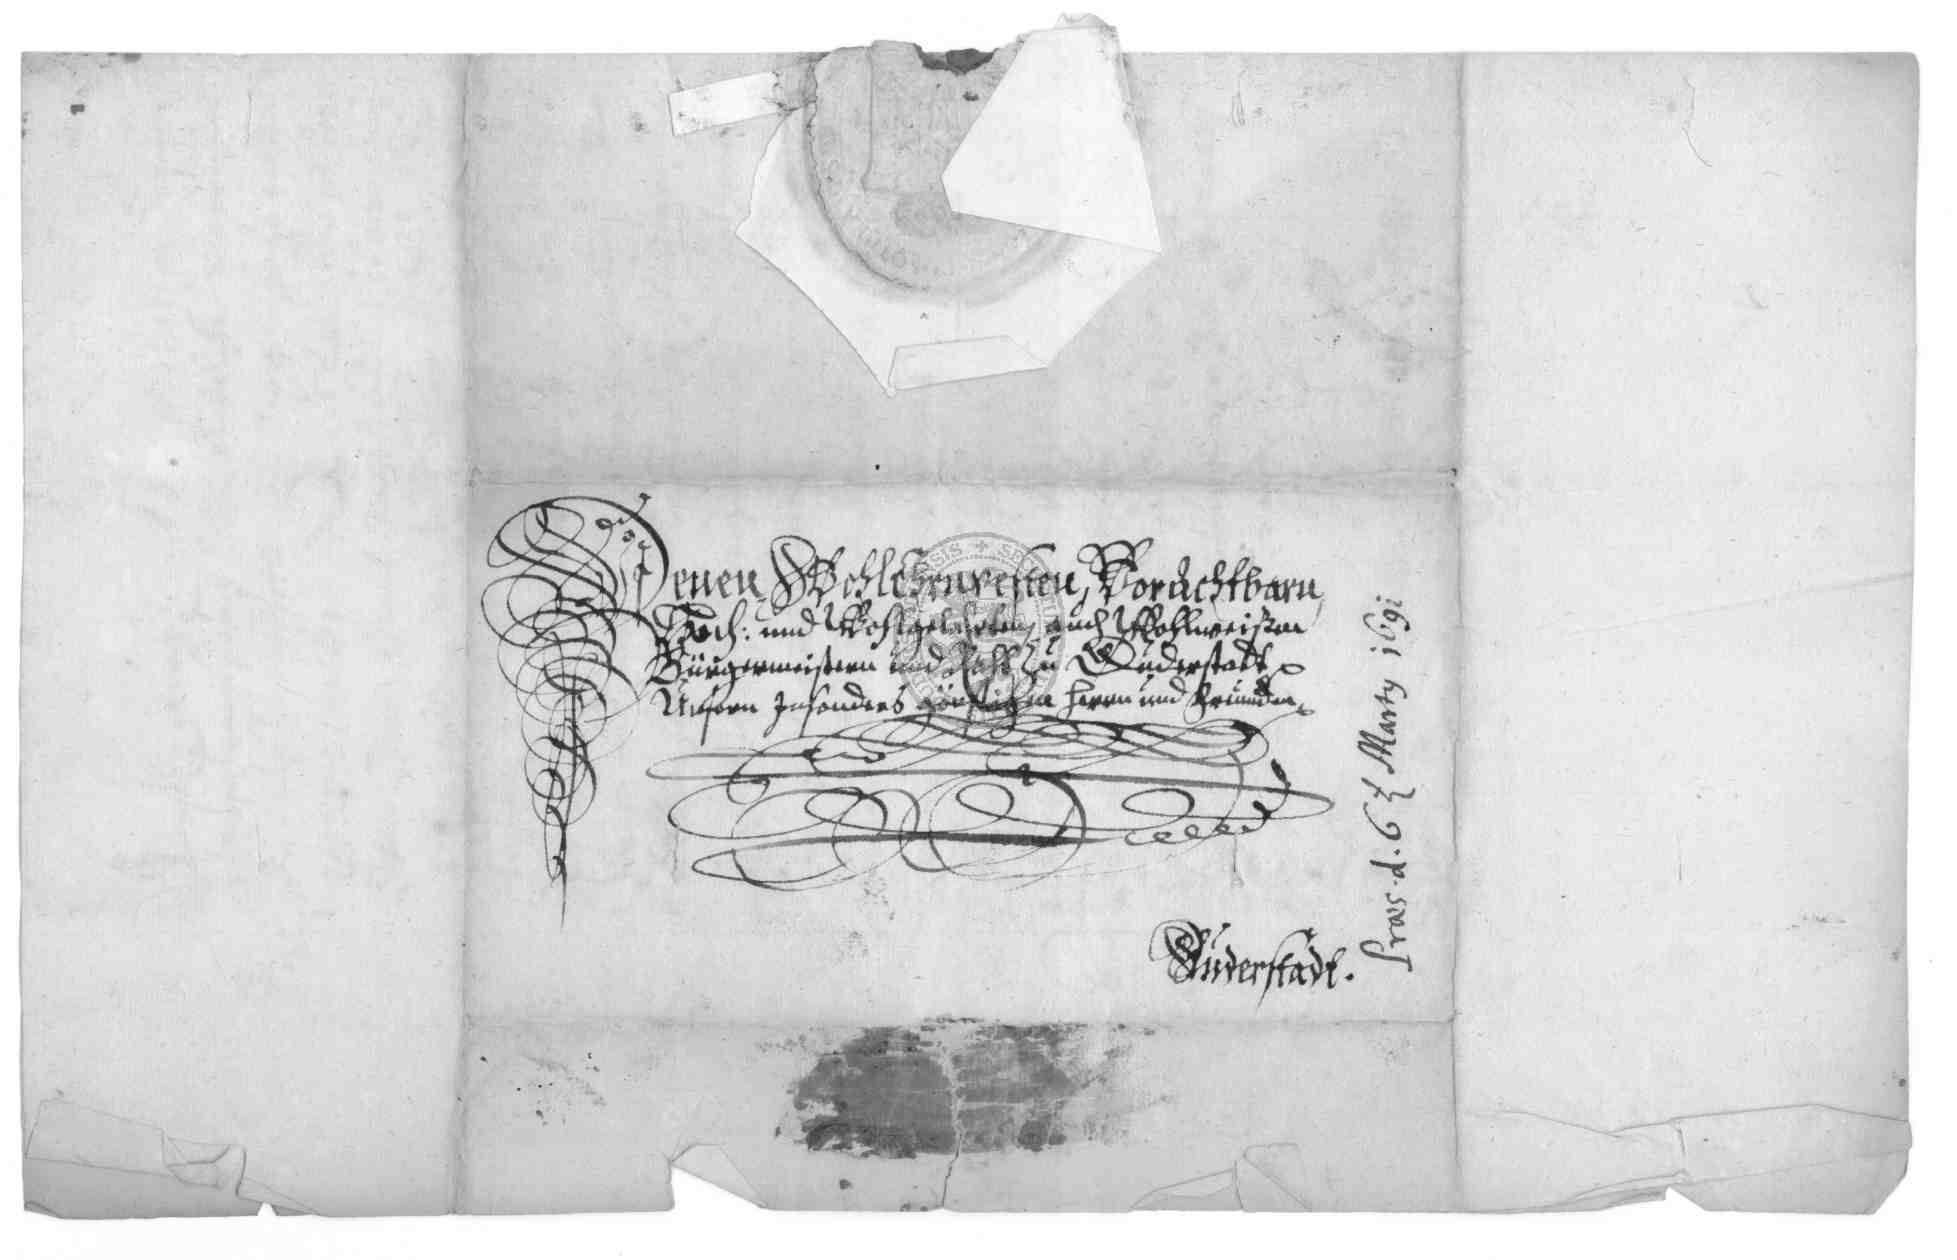 Denen WohlEhrnvesten, Vorachtbarn,
Hoch: und Wohlgelahrten, auch Wohlweißen
Bürgermeistern und Raht zu Duderstadt
Unsern Insonders günstigen Herrn und Freunden
Duderstadt.
Præs. d. 6 t. Marty 1691